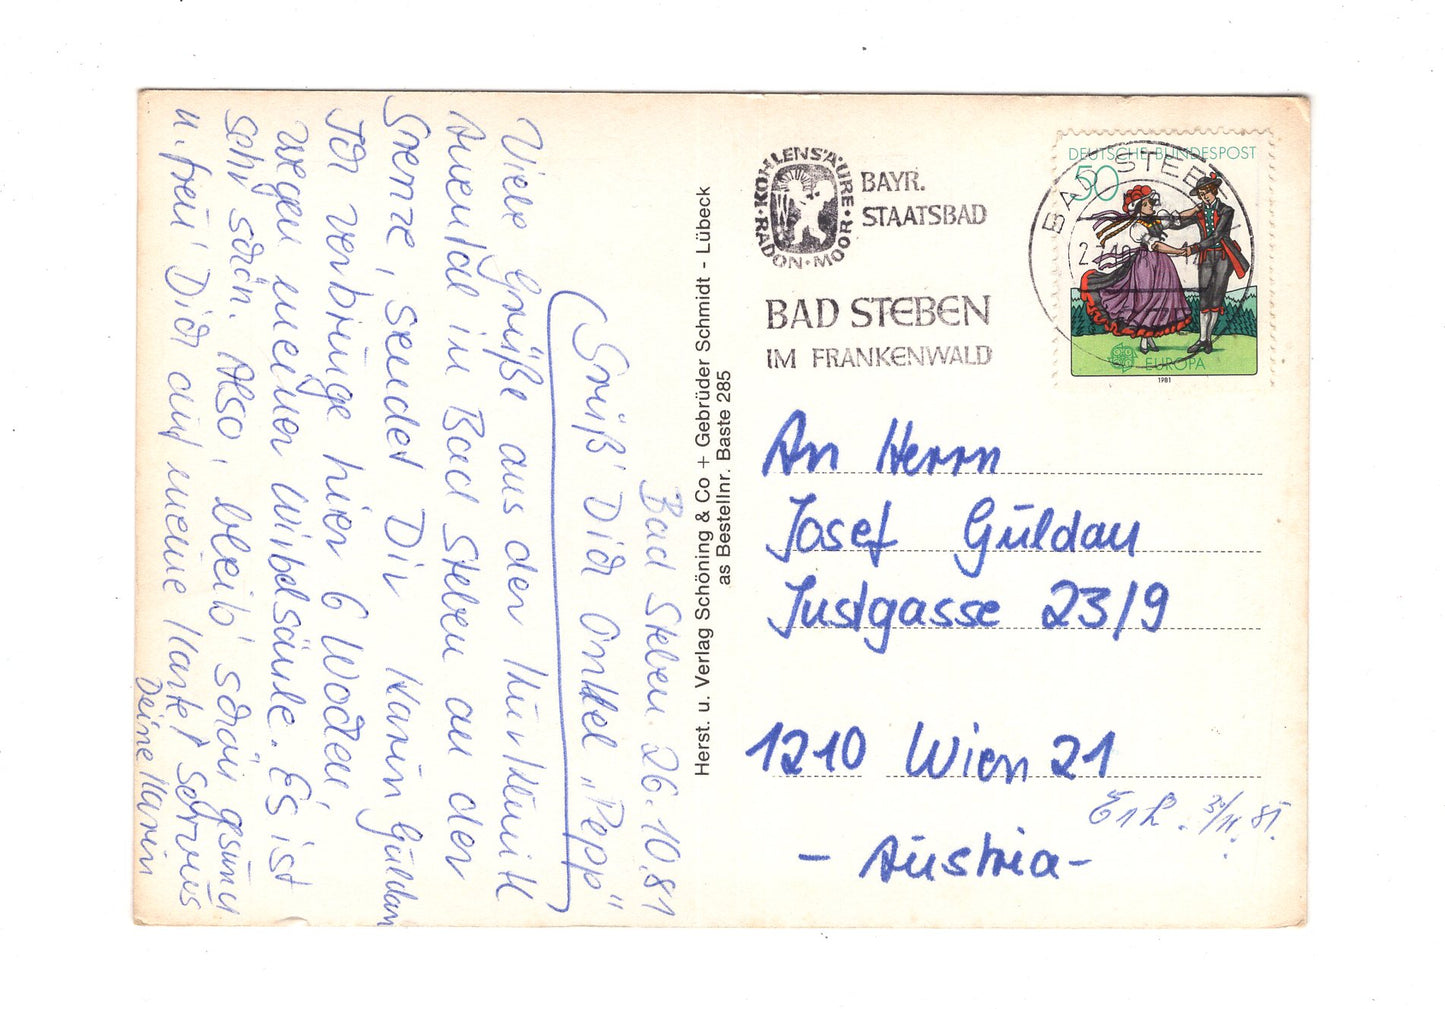 Bad Steben 26.10.81
Grüß' Dich Onkel "Pepp"
Viele Grüße aus der Kurklinik
Auental in Bad Steben an der
Grenze, sendet Dir Karin Güldan
Ich verbringe hier 6 Wochen,
wegen meiner Wirbelsäule. Es ist
sehr schön. Also, bleib' schön gesund
u. freu' Dich auf meine Karte! Servus
Deine Karin
Herst. u. Verlag Schöning & Co + Gebrüder Schmidt - Lübeck
as Bestellnr. Baste 285
RADON · KOHLENSÄURE · MOOR ·
BAYR.
STAATSBAD
BAD STEBEN
IM FRANKENWALD
BAD STEBEN
DEUTSCHE BUNDESPOST
50
EUROPA
1981
An Herrn
Josef Güldau
Justgasse 23/9
1210 Wien 21
- Austria -
Erh. 3/11.81.